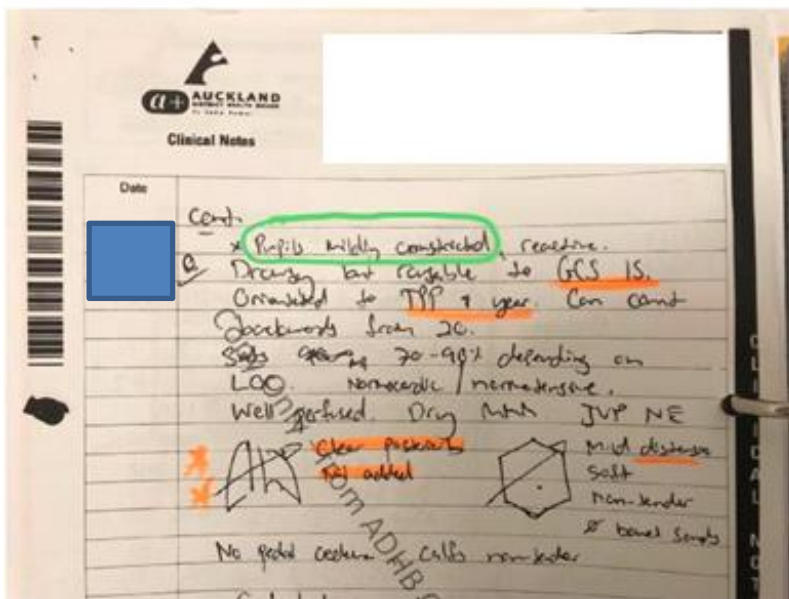 a+ AUCKLAND
DISTRICT HEALTH BOARD
Clinical Notes
Date
Cont.
x Pupils mildly constricted, reactive.
Drowsy but rousable to GCS 15.
Orientated to TPP + year. Can count
backwards from 20.
Sats 70-98% depending on
LOC. Normocardic / normotensive.
Well perfused. Dry JVP NE
Clear posteriorly
Nil added
Mild distension
Soft
non-tender
ø bowel sounds
No pedal oedema calfs non-tender
from ADHB